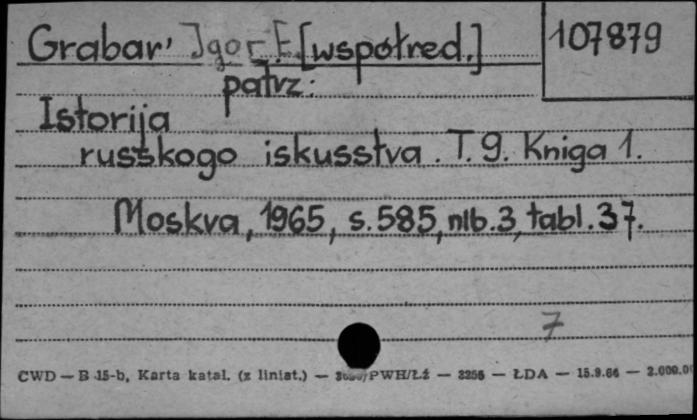 Grabar' Igor E. [współred.] 107879
patrz:
Istorija
russkogo iskusstva. T. 9. Kniga 1.
Moskva, 1965, s. 585, nlb. 3, tabl. 37.
7
CWD — B 15-b, Karta katal. (z liniat.) — PWH/Łź — 3256 — ŁDA — 15.9.66 —